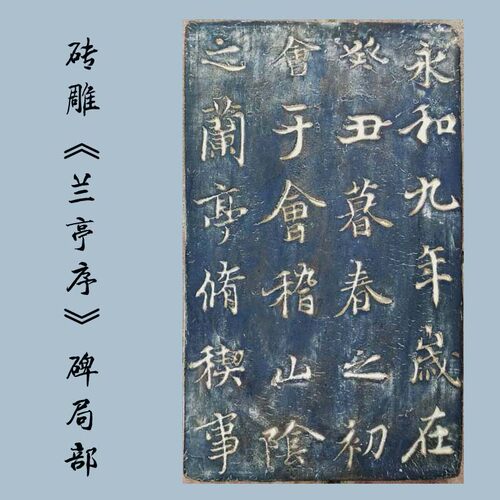 永和九年歲在
癸丑暮春之初
會于會稽山陰
之蘭亭脩稧事
砖雕《兰亭序》碑局部